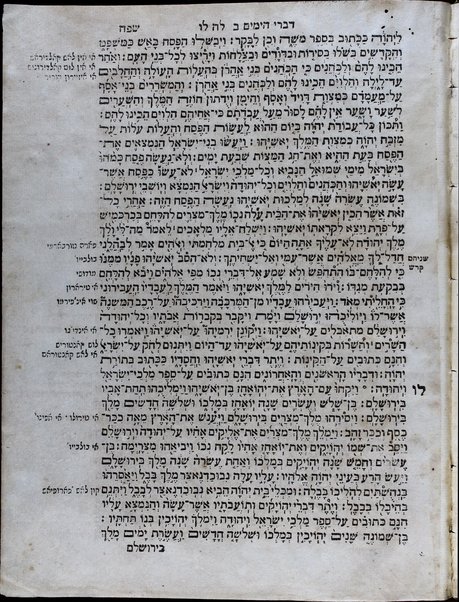 דברי הימים ב לה לו שפח
ליהוה ככתוב בספר משה וכן לבקר: ויבשלו הפסח באש כמשפט
והקדשים בשלו בסירות ובדודים ובצלחות ויריצו לכל־בני העם: ואחר
הכינו להם ולכהנים כי הכהנים בני אהרן בהעלות העולה והחלבים
עד־לילה והלוים הכינו להם ולכהנים בני אהרן: והמשררים בני־אסף
על־מעמדם כמצות דויד ואסף והימן וידתון חוזה המלך והשערים
לשער ושער אין להם לסור מעל עבדתם כי־אחיהם הלוים הכינו להם:
ותכון כל־עבודת יהוה ביום ההוא לעשות הפסח והעלות עלות על
מזבח יהוה כמצות המלך יאשיהו: ויעשו בני־ישראל הנמצאים את־
הפסח בעת ההיא ואת־חג המצות שבעת ימים: ולא־נעשה פסח כמהו
בישראל מימי שמואל הנביא וכל־מלכי ישראל לא־עשו כפסח אשר־
עשה יאשיהו והכהנים והלוים וכל־יהודה וישראל הנמצא ויושבי ירושלם:
בשמונה עשרה שנה למלכות יאשיהו נעשה הפסח הזה: אחרי כל־
זאת אשר הכין יאשיהו את־הבית עלה נכו מלך־מצרים להלחם בכרכמיש
על־פרת ויצא לקראתו יאשיהו: וישלח אליו מלאכים לאמר מה־לי ולך
מלך יהודה לא־עליך אתה היום כי אל־בית מלחמתי ואלהים אמר לבהלני
חדל־לך מאלהים אשר־עמי ואל־ישחיתך: ולא־הסב יאשיהו פניו ממנו
כי להלחם־בו התחפש ולא שמע אל־דברי נכו מפי אלהים ויבא להלחם
בבקעת מגדו: וירו הירים למלך יאשיהו ויאמר המלך לעבדיו העבירוני
כי החליתי מאד: ויעבירהו עבדיו מן־המרכבה וירכיבהו על־רכב המשנה
אשר־לו ויוליכהו ירושלם וימת ויקבר בקברות אבתיו וכל־יהודה
וירושלם מתאבלים על־יאשיהו: ויקונן ירמיהו על־יאשיהו ויאמרו כל־
השרים והשרות בקינותיהם על־יאשיהו עד־היום ויתנום לחק על־ישראל
והנם כתובים על־הקינות: ויתר דברי יאשיהו וחסדיו ככתוב בתורת
יהוה: ודבריו הראשנים והאחרונים הנם כתובים על־ספר מלכי־ישראל
לו
ויהודה: ויקחו עם־הארץ את־יהואחז בן־יאשיהו וימליכהו תחת־אביו
בירושלם: בן־שלש ועשרים שנה יואחז במלכו ושלשה חדשים מלך
בירושלם: ויסירהו מלך־מצרים בירושלם ויענש את־הארץ מאה ככר־
כסף וככר זהב: וימלך מלך־מצרים את־אליקים אחיו על־יהודה וירושלם
ויסב את־שמו יהויקים ואת־יואחז אחיו לקח נכו ויביאהו מצרימה: בן־
עשרים וחמש שנה יהויקים במלכו ואחת עשרה שנה מלך בירושלם
ויעש הרע בעיני יהוה אלהיו: עליו עלה נבוכדנאצר מלך בבל ויאסרהו
בנחשתים להליכו בבלה: ומכלי בית יהוה הביא נבוכדנאצר לבבל ויתנם
בהיכלו בבבל: ויתר דברי יהויקים ותעבתיו אשר־עשה והנמצא עליו
הנם כתובים על־ספר מלכי ישראל ויהודה וימלך יהויכין בנו תחתיו:
בן־שמונה שנים יהויכין במלכו ושלשה חדשים ועשרת ימים מלך
בירושלם